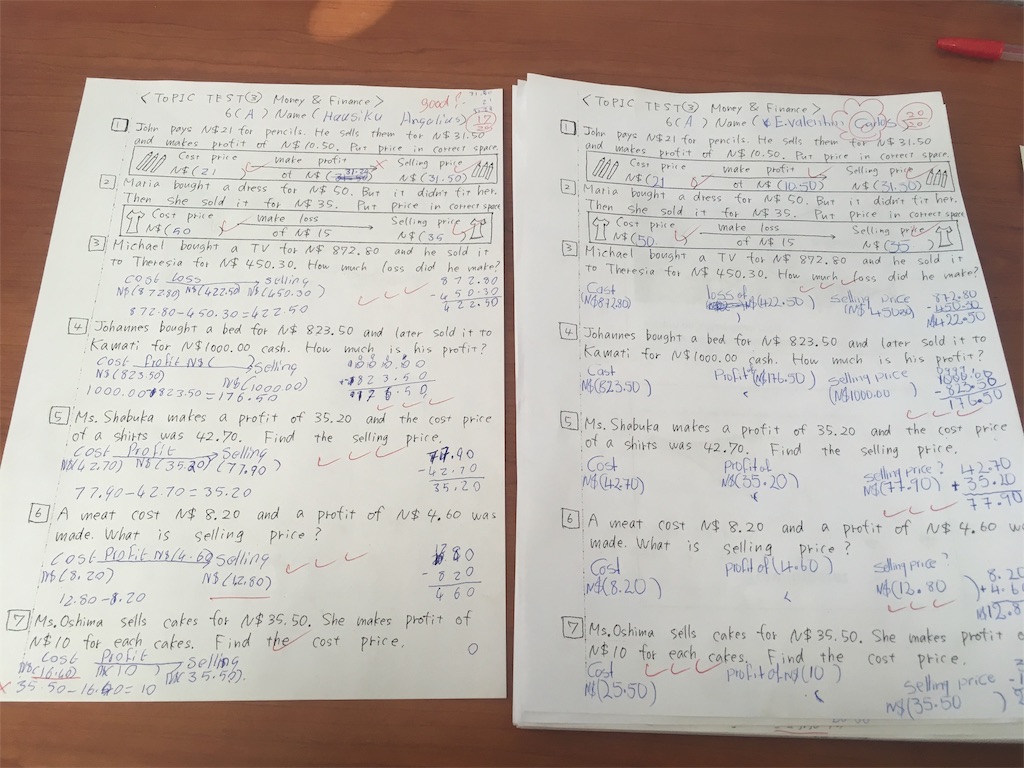 < TOPIC TEST③ Money & Finance >
good!
6(A) Name (Hausiku Angelius)
17
20
1 John pays N$21 for pencils. He sells them for N$31.50
and makes profit of N$10.50. Put price in correct space.
Cost price make profit Selling price
N$(21 ) of N$( ) N$(31.50)
2 Maria bought a dress for N$50. But it didn't fit her.
Then she sold it for N$35. Put price in correct space
Cost price make loss Selling price
N$(50 ) of N$15 N$(35 )
3 Michael bought a TV for N$872.80 and he sold it
to Theresia for N$450.30. How much loss did he make?
Cost Loss Selling 872.80
N$(872.80) N$(422.50) N$(450.30) - 450.30
872.80-450.30=422.50 422.50
4 Johannes bought a bed for N$823.50 and later sold it to
Kamati for N$1000.00 cash. How much is his profit?
Cost Profit N$( ) Selling
N$(823.50) N$(1000.00) 823.50
1000.00-823.50=176.50 176.50
5 Ms. Shabuka makes a profit of 35.20 and the cost price
of a shirts was 42.70. Find the selling price.
Cost Profit Selling 77.90
N$(42.70) N$(35.20) (77.90) -42.70
77.90-42.70=35.20 35.20
6 A meat cost N$8.20 and a profit of N$4.60 was
made. What is selling price?
Cost Profit N$(4.60 Selling
N$(8.20) N$(12.80) - 820
12.80-8.20 460
7 Ms. Oshima sells cakes for N$35.50. She makes profit of
N$10 for each cakes. Find the cost price.
0
Cost Profit Selling
N$(16.60) N$(10 ) N$(35.50).
< TOPIC TEST③ Money & Finance >
6(A) Name ( E. Carlos )
20
20
1 John pays N$21 for pencils. He sells them for N$31.50
and makes profit of N$10.50. Put price in correct space.
Cost price make profit Selling price
N$(21 ) of N$(10.50) N$(31.50)
2 Maria bought a dress for N$50. But it didn't fit her.
Then she sold it for N$35. Put price in correct space.
Cost price make loss Selling price
N$(50. ) of N$15 N$(35 )
3 Michael bought a TV for N$872.80 and he sold it
to Theresia for N$450.30. How much loss did he make?
Cast loss of Selling price 872.80
(N$872.80) N$(422.50) -450.30
N$422.50
4 Johannes bought a bed for N$823.50 and later sold it to
Kamati for N$1000.00 cash. How much is his profit?
Cast Profit of Selling price 1000.00
N$(823.50) N$(176.50) (N$1000.00 -823.50
176.50
5 Ms. Shabuka makes a profit of 35.20 and the cost price
of a shirts was 42.70. Find the selling price.
Cost profit of selling price? 42.70
N$(42.70) N$(35.20) N$(77.90) +35.20
77.90
6 A meat cost N$8.20 and a profit of N$4.60 was
made. What is selling price?
Cost profit of (4.60) selling price? 8.20
N$(8.20) N$(12.80 )+4.60
N$12.8
7 Ms. Oshima sells cakes for N$35.50. She makes profit
N$10 for each cakes. Find the cost price.
Cost profit of N$(10 ) selling price
N$(25.50) N$(35.50 )